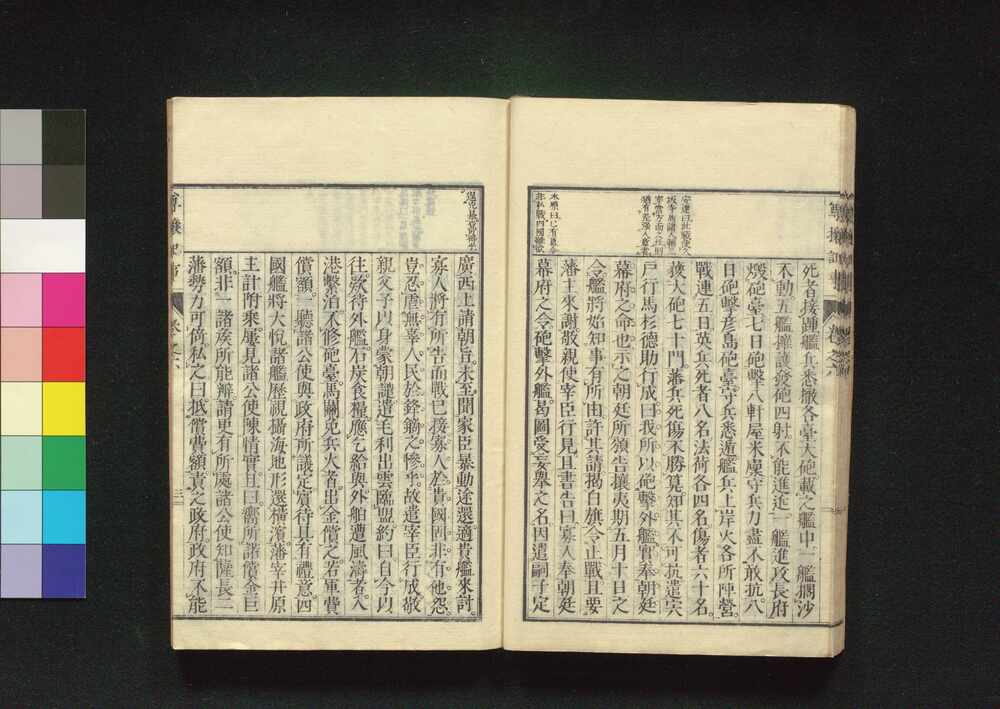 死者接踵艦兵悉撤各臺大砲載之艦中一艦擱沙
不動五艦擁護發砲四射不能進近一艦進攻長府
燬砲臺七日砲擊八軒屋米廩守兵力盡不敢抗八
日砲擊彦島砲臺守兵悉遁艦兵上岸火各所陣營
戰連五日英兵死者八名法荷各四名傷者六十名
獲大砲七十門藩兵死傷不勝算知其不可抗遣宍
戶行馬杉德助行成曰我所以砲擊外艦實奉朝廷
幕府之命也示之朝廷所頒告攘夷期五月十日之
令艦將始知事有所由許其請揭白旗令止戰且要
藩主來謝敬親使宰臣行見且書告曰寡人奉朝廷
幕府之令砲擊外艦曷圖受妄舉之名因遣嗣子定
廣西上請朝旨未至聞家臣暴動途還適貴艦來討
寡人將有所告而戰已接寡人於貴國固非有他怨
豈忍虐無辜人民於鋒鏑之慘乎故遣宰臣行成敬
親父子以身蒙朝譴遣毛利出雲臨盟約曰自今以
往款待外艦石炭食糧應乞給與外舶遭風濤者入
港繫泊不修砲臺馬關免兵火者出金償之若軍費
償額一聽諸公使與政府所議定寬待具有禮意四
國艦將大悅諸艦歷視攝海地形還橫濱藩宰井原
主計附乘屢見諸公使陳情實且曰嚮所諾償金巨
額非一諸侯所能辨請更有所處諸公使知憚長三
藩勢力可倚私之曰抵償費額責之政府政府不能